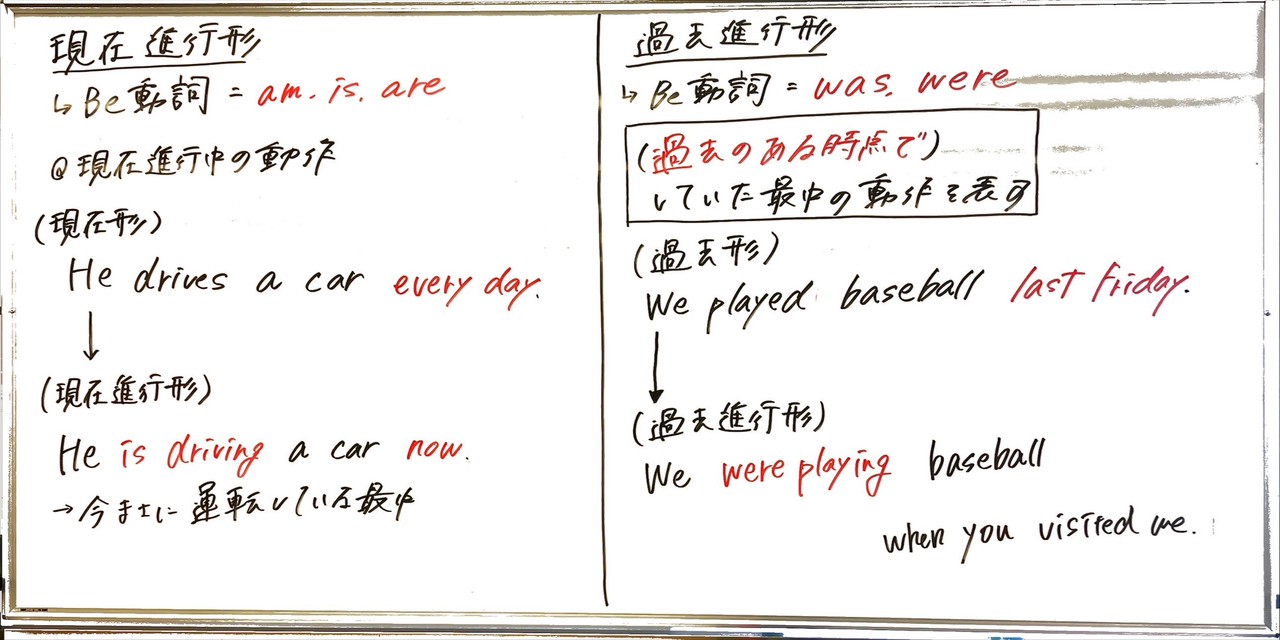 現在進行形
↳ Be動詞 = am. is. are
@現在進行中の動作
(現在形)
He drives a car every day.
↓
(現在進行形)
He is driving a car now.
→今まさに運転している最中
過去進行形
↳ Be動詞 = was. were
(過去のある時点で)
していた最中の動作を表す
(過去形)
We played baseball last Friday.
↓
(過去進行形)
We were playing baseball
when you visited me.